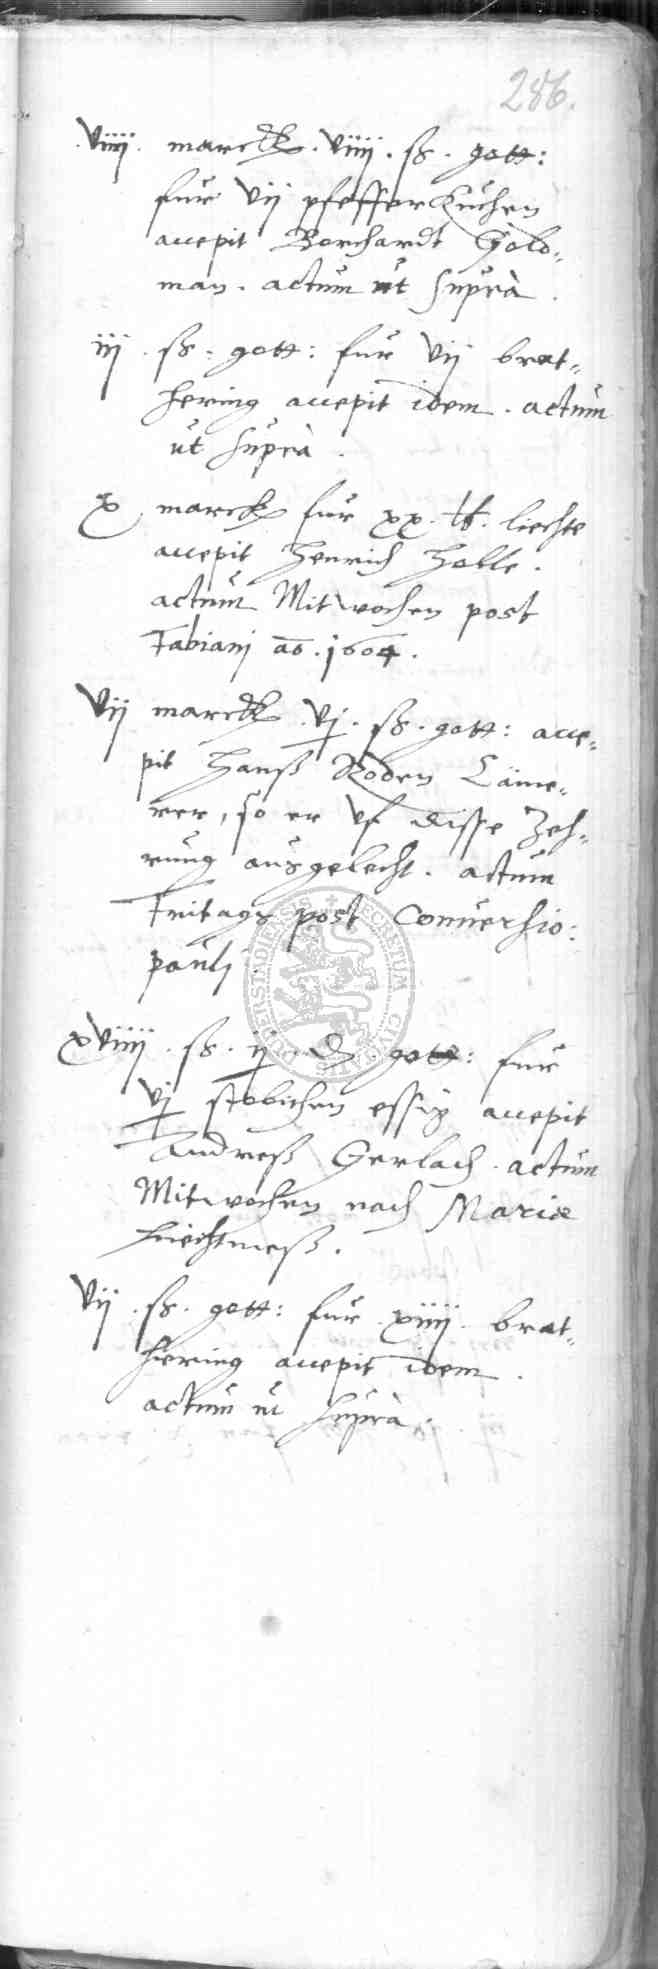 286.
viiij. marck. viiij. ß. gott:
fur vij pfefferkuchen
accepit Borchardt Gold-
man. actum ut suprà.
iij. ß. gott: fur vij brat-
hering accepit idem. actum
ut suprà.
x marck fur xx. ℔. liechte
accepit Henrich Holle.
actum Mitwochen post
Fabianj ao. 1604.
vij marck. vj. ß. gott: acce-
pit Hanß Roden Cäme-
rer, so er uf disse Zeh-
rung ausgelecht. actum
Fritags post Conversio:
paulj.
xviiij. ß. ij. ₰ gott: fur
vj stobichen essig accepit
Andreß Gerlach. actum
Mitwochen nach Mariæ
Liechtmeß.
vij. ß. gott: fur xiiij. brat-
hering accepit idem.
actum ut suprà.
SECRETUM CIVITATIS DUDERSTADIENSIS